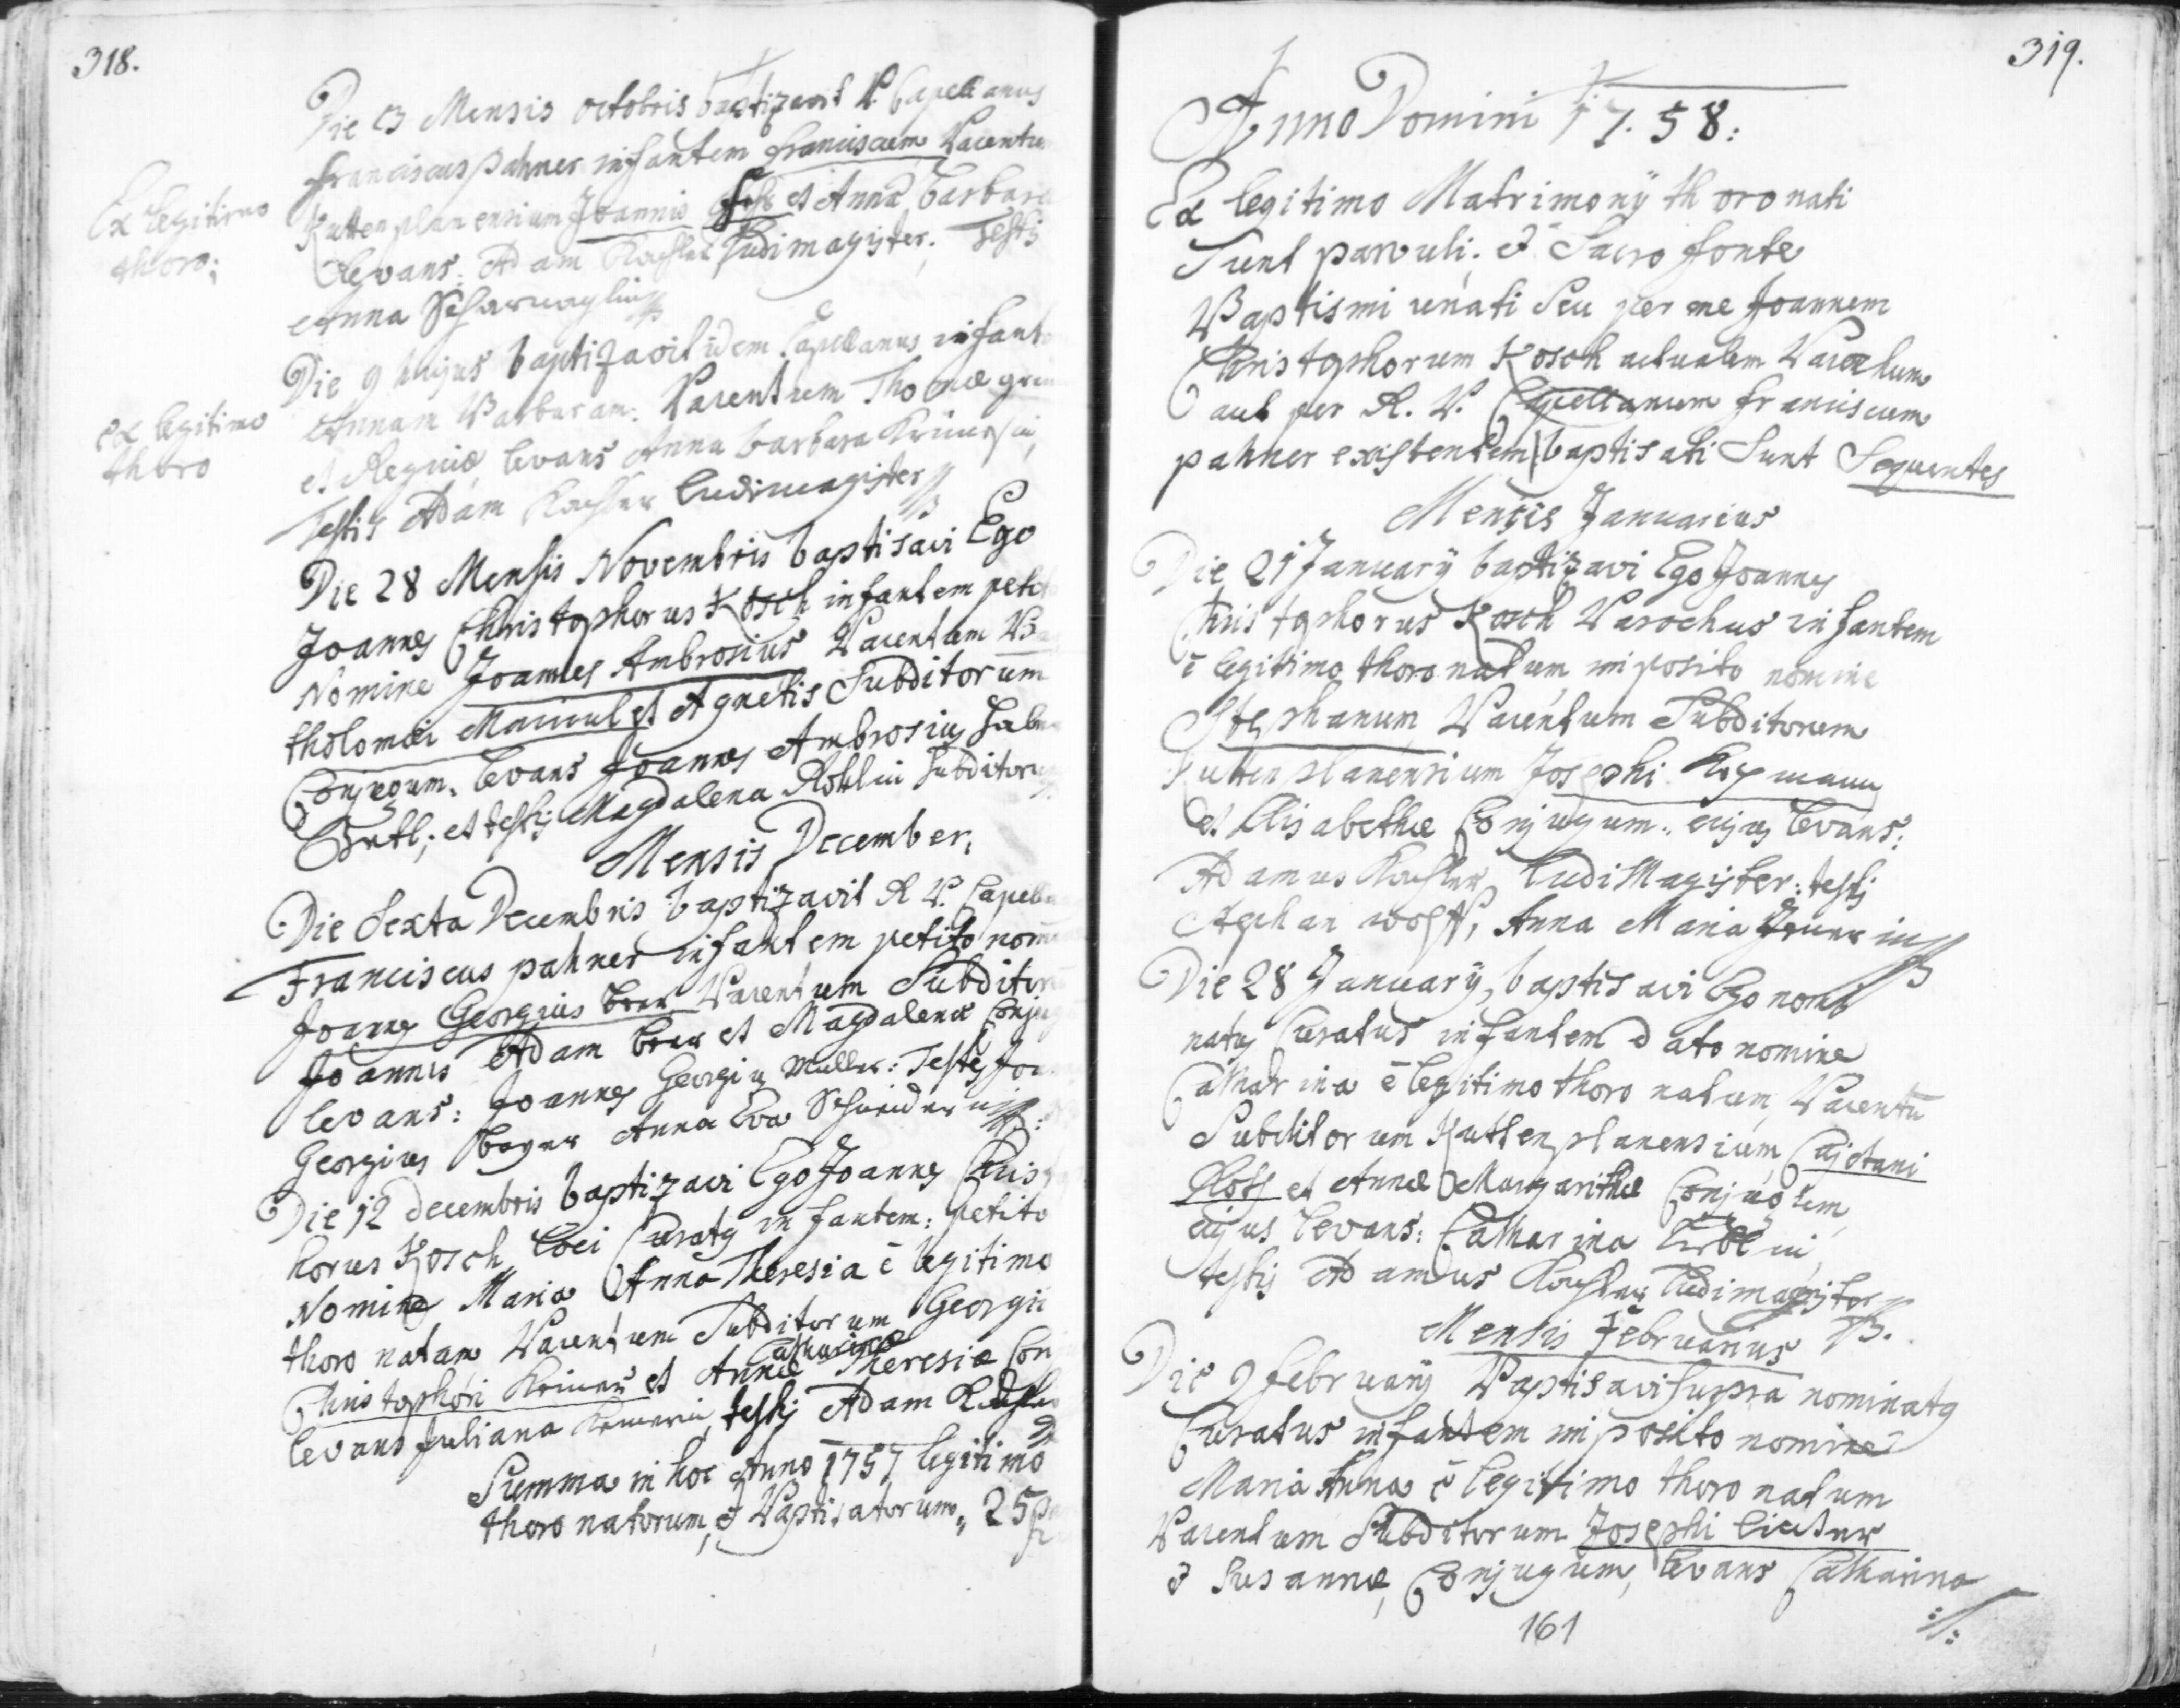 318.
Die 13 Mensis octobris baptizavit V. Capellanus
Franciscus pahner infantem Franciscum Parentum
Kuttenplanensium Joannis et Anna Barbara
Ex legitimo
thoro:
levans: Adam Kochler Ludimagister. Testis
Anna
Die 9 hujus baptizavit idem Capellanus infant
ex legitimo
thoro
Annam Barbaram: Parentum Thomæ
et Reginæ levans Anna barbara
Testis Adam Kochler Ludimagister
Die 28 Mensis Novembris baptisavi Ego
Joannes Christophorus Kosch infantem petit
Nomine Joannes Ambrosius Parentum Ba
tholomæi et Agnetis Subditorum
Conjugum. levans Joannes Ambrosius
et testis Magdalena Subditoru
Mensis December.
Die Sexta Decembris baptizavit R V. Capella
Franciscus pahner infantem petito nom
Joannes Georgius Parentum Subditor
Joannis Adam et Magdalenæ Conjug
levans: Joannes Georgius Muller: Testes Joa
Georgius Bayer Anna Eva Schneiderin
Die 12 decembris baptizavi Ego Joannes Christ
horus Kosch loci Curatus infantem: petito
Nomine Maria Anna Theresia e legitimo
thoro natam Parentum Subditorum Georgii
Catharinæ
Christophori et Annæ Theresiæ Con
levans Juliana testis Adam Kochler
Summa in hoc Anno 1757 legitimo
thoro natorum, & Baptisatorum, 25
319.
Anno Domini 1758:
Ex legitimo Matrimonÿ thoro nati
Sunt parvuli; & Sacro fonte
Baptismi renati Seu per me Joannem
Christophorum Kosch actualem Parochum
aut per R. V. Capellanum Franciscum
pahner existentem baptisati Sunt Sequentes
Mensis Januarius
Die 21 Januarÿ baptizavi Ego Joannes
Christophorus Kosch Parochus infantem
e legitimo thoro natum imposito nomine
Stephanum Parentum Subditorum
Kuttenplanensium Josephi
et Elisabethæ Conjugum. cujus levans:
Adamus Kochler Ludi Magister: testis
Stephan Wolff, Anna Maria
Die 28 Januarÿ, baptisavi Ego nomi
natus Curatus infantem dato nomine
Catharina e legitimo thoro natum Parentū
Subditorum Kuttenplanensium Cajetani
et Annæ Margarithæ Conjugum
cujus levans: Catharina
testis Adamus Kochler Ludimagister
Mensis Februarius
Die 9 februarÿ Baptisavi Supra nominatus
Curatus infantem imposito nomine
Maria Anna e legitimo thoro natum
Parentum Subditorum Josephi
& Susannæ, Conjugum, levans Catharina
161